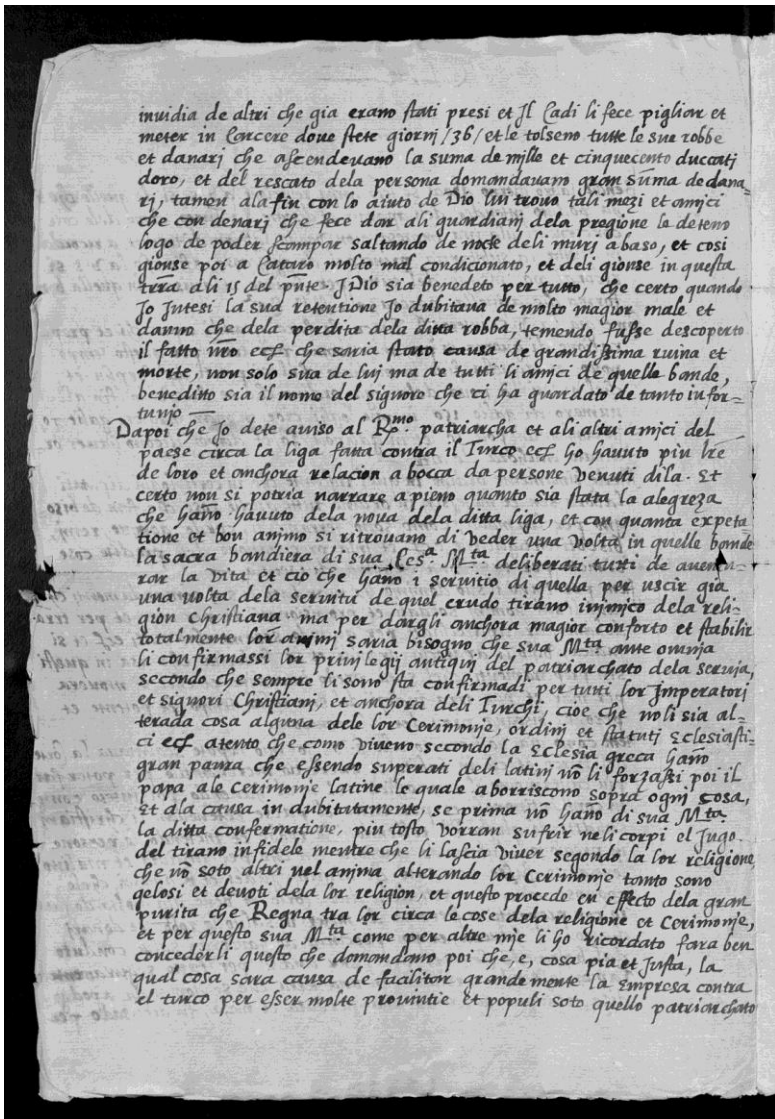 inuidia de altri che gia erano stati presi et Il Cadi li fece pigliar et
meter in Carcere doue stete giornj /36/ et le tolseno tutte le sue robbe
et danarj che ascendeuano la suma de mille et cinquecento duccatj
doro, et del rescato dela persona domandauam gran sūma de dana=
rj, tamen ala fin con lo aiuto de Dio lui trouo tali mezi et amici
che con denarj che fece dar ali guardianj dela pregione le deteno
logo de poder scampar saltando de nocte deli murj abaso, et cosi
gionse poi a Cataro molto mal condicionato, et deli gionse in questa
trra ali 15 del pn̄te. JDio sia benedeto per tutto, che certo quando
Jo Jntesi la sua retentione Jo dubitaua de molto magior male et
danno che dela perdita dela ditta robba, temendo fusse descoperto
il fatto n̄ro ecꝭ che saria stato causa de grandissima ruina et
morte, non solo sua de lui ma de tutti li amjci de quelle bande,
beneditto sia il nome del signore che ci ha guardato de tanto infor=
tunjo
Dapoi che Jo dete auiso al R.mo patriarcha et ali altri amjci del
paese circa la liga fatta contra il Turco ecꝭ ho hauuto piu lr̄e
de loro et anchora relacion a bocca da persone venuti dila. Et
certo non si potria narrare a pieno quanto sia stata la alegreza
che hano hauuto dela noua dela ditta liga, et con quanta expeta
tione et bon anjmo si ritrouano di veder una volta in quelle bande
la sacra bandiera di sua Ces.a M.ta deliberati tutti de auentu
rar la vita et cio che hano i seruitio di quella per uscir gia
una volta dela seruitu de quel crudo tirano injmico dela reli=
gion Christiana ma per dargli anchora magior conforto et stabilir
totalmente lor anjmj saria bisogno che sua M.ta ante omnja
li confirmassi lor priujlegij antiquj del patriarchato dela seruia,
secondo che sempre li sono sta confirmadi per tutti lor Jmperatorj
et signori Christianj, et anchora deli Turchi, cioe che no li sia al=
terada cosa alguna dele lor Cerimonje, ordinj et statuti Eclesiasti=
ci ecꝭ atento che como viueno secondo la Eclesia greca hano
gran paura che essendo superati deli latinj nō li forzassi poi il
papa ale cerimonje latine le quale aborriscono sopra ognj cosa,
Et ala causa in dubitatamente, se prima nō hano di sua M.ta
la ditta confermatione, piu tosto vorran sufrir neli corpi el Jugo
del tirano infidele mentre che li lascia viuer segondo la lor religione,
che nō soto altri nel anjma alterando lor Cerimonje tanto sono
gelosi et deuoti dela lor religion, et questo procede en effecto dela gran
purita che Regna tra lor circa le cose dela religione et Cerimonje,
et per questo sua M.ta come per altre mje li ho ricordato fara ben
concederli questo che domandano poi che, e, cosa pia et Justa, la
qual cosa sara causa de facilitar grandemente la Empresa contra
el turco per esser molte prouintie et populi soto quello patriarchato